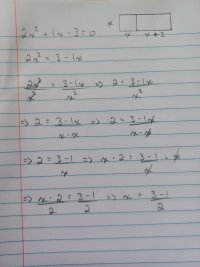 2x² + 1x - 3 = 0
x
x
x + 2
2x² = 3 - 1x
2x²/x² = 3-1x/x² => 2 = 3-1x/x²
=> 2 = 3-1x/x·x => 2 = 3-1x/x·x
=> 2 = 3-1/x => x·2 = 3-1/x · x
=> x·2/2 = 3-1/2 => x = 3-1/2